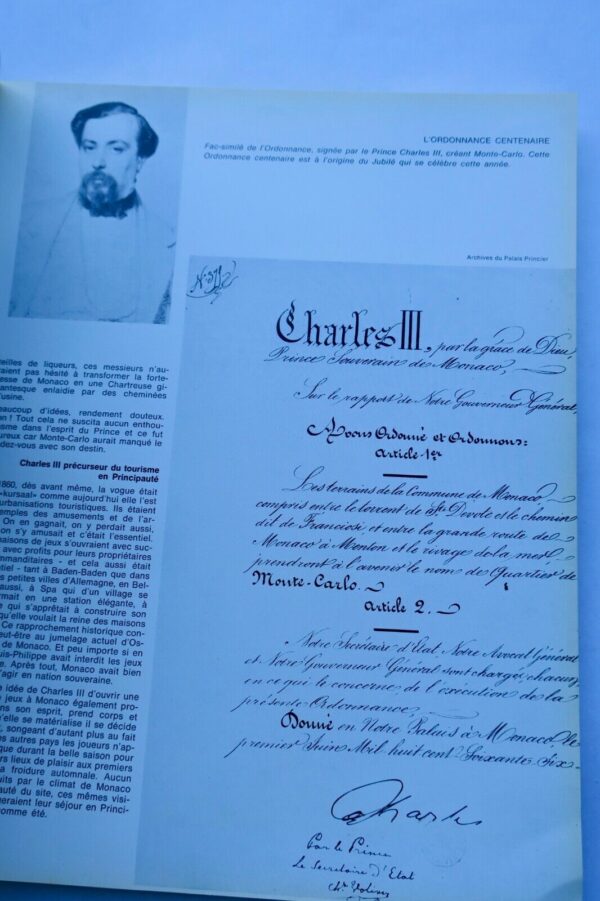 L'ORDONNANCE CENTENAIRE
Fac-similé de l'Ordonnance, signée par le Prince Charles III, créant Monte-Carlo. Cette
Ordonnance centenaire est à l'origine du Jubilé qui se célèbre cette année.
Archives du Palais Princier
eilles de liqueurs, ces messieurs n'au-
raient pas hésité à transformer la forte-
esse de Monaco en une Chartreuse gi-
antesque enlaidie par des cheminées
'usine.
eaucoup d'idées, rendement douteux.
on ! Tout cela ne suscita aucun enthou-
sme dans l'esprit du Prince et ce fut
ureux car Monte-Carlo aurait manqué le
dez-vous avec son destin.
Charles III précurseur du tourisme
en Principauté
1860, dès avant même, la vogue était
«kursaal» comme aujourd'hui elle l'est
urbanisations touristiques. Ils étaient
emples des amusements et de l'ar-
On en gagnait, on y perdait aussi,
on s'y amusait et c'était l'essentiel.
aisons de jeux s'ouvraient avec suc-
avec profits pour leurs propriétaires
mmanditaires - et cela aussi était
tiel - tant à Baden-Baden que dans
s petites villes d'Allemagne, en Bel-
aussi, à Spa qui d'un village se
rmait en une station élégante, à
e qui s'apprêtait à construire son
qu'elle voulait la reine des maisons
Ce rapprochement historique con-
eut-être au jumelage actuel d'Os-
de Monaco. Et peu importe si en
uis-Philippe avait interdit les jeux
e. Après tout, Monaco avait bien
d'agir en nation souveraine.
e idée de Charles III d'ouvrir une
e jeux à Monaco également pro-
ns son esprit, prend corps et
'elle se matérialise il se décide
, songeant d'autant plus au fait
es autres pays les joueurs n'ap-
que durant la belle saison pour
rs lieux de plaisir aux premiers
a froidure automnale. Aucun
uits par le climat de Monaco
auté du site, ces mêmes visi-
geraient leur séjour en Princi-
omme été.
Charles III, par la grâce de Dieu,
Prince Souverain de Monaco,
Sur le rapport de Notre Gouverneur Général,
Avons Ordonné et Ordonnons:
Article 1er
Les terrains de la Commune de Monaco
compris entre le torrent de Ste Dévote et le chemin
dit de Franciosi, et entre la grande route de
Monaco à Menton et le rivage de la mer,
prendront à l'avenir le nom de Quartier de
Monte-Carlo.
Article 2.
Notre Secrétaire d'Etat, Notre Avocat Général
et Notre Gouverneur Général sont chargés, chacun
en ce qui le concerne, de l'exécution de la
présente Ordonnance,
Donné en Notre Palais à Monaco le
premier Juin Mil huit cent Soixante Six
Charles
Par le Prince
Le Secrétaire d'Etat